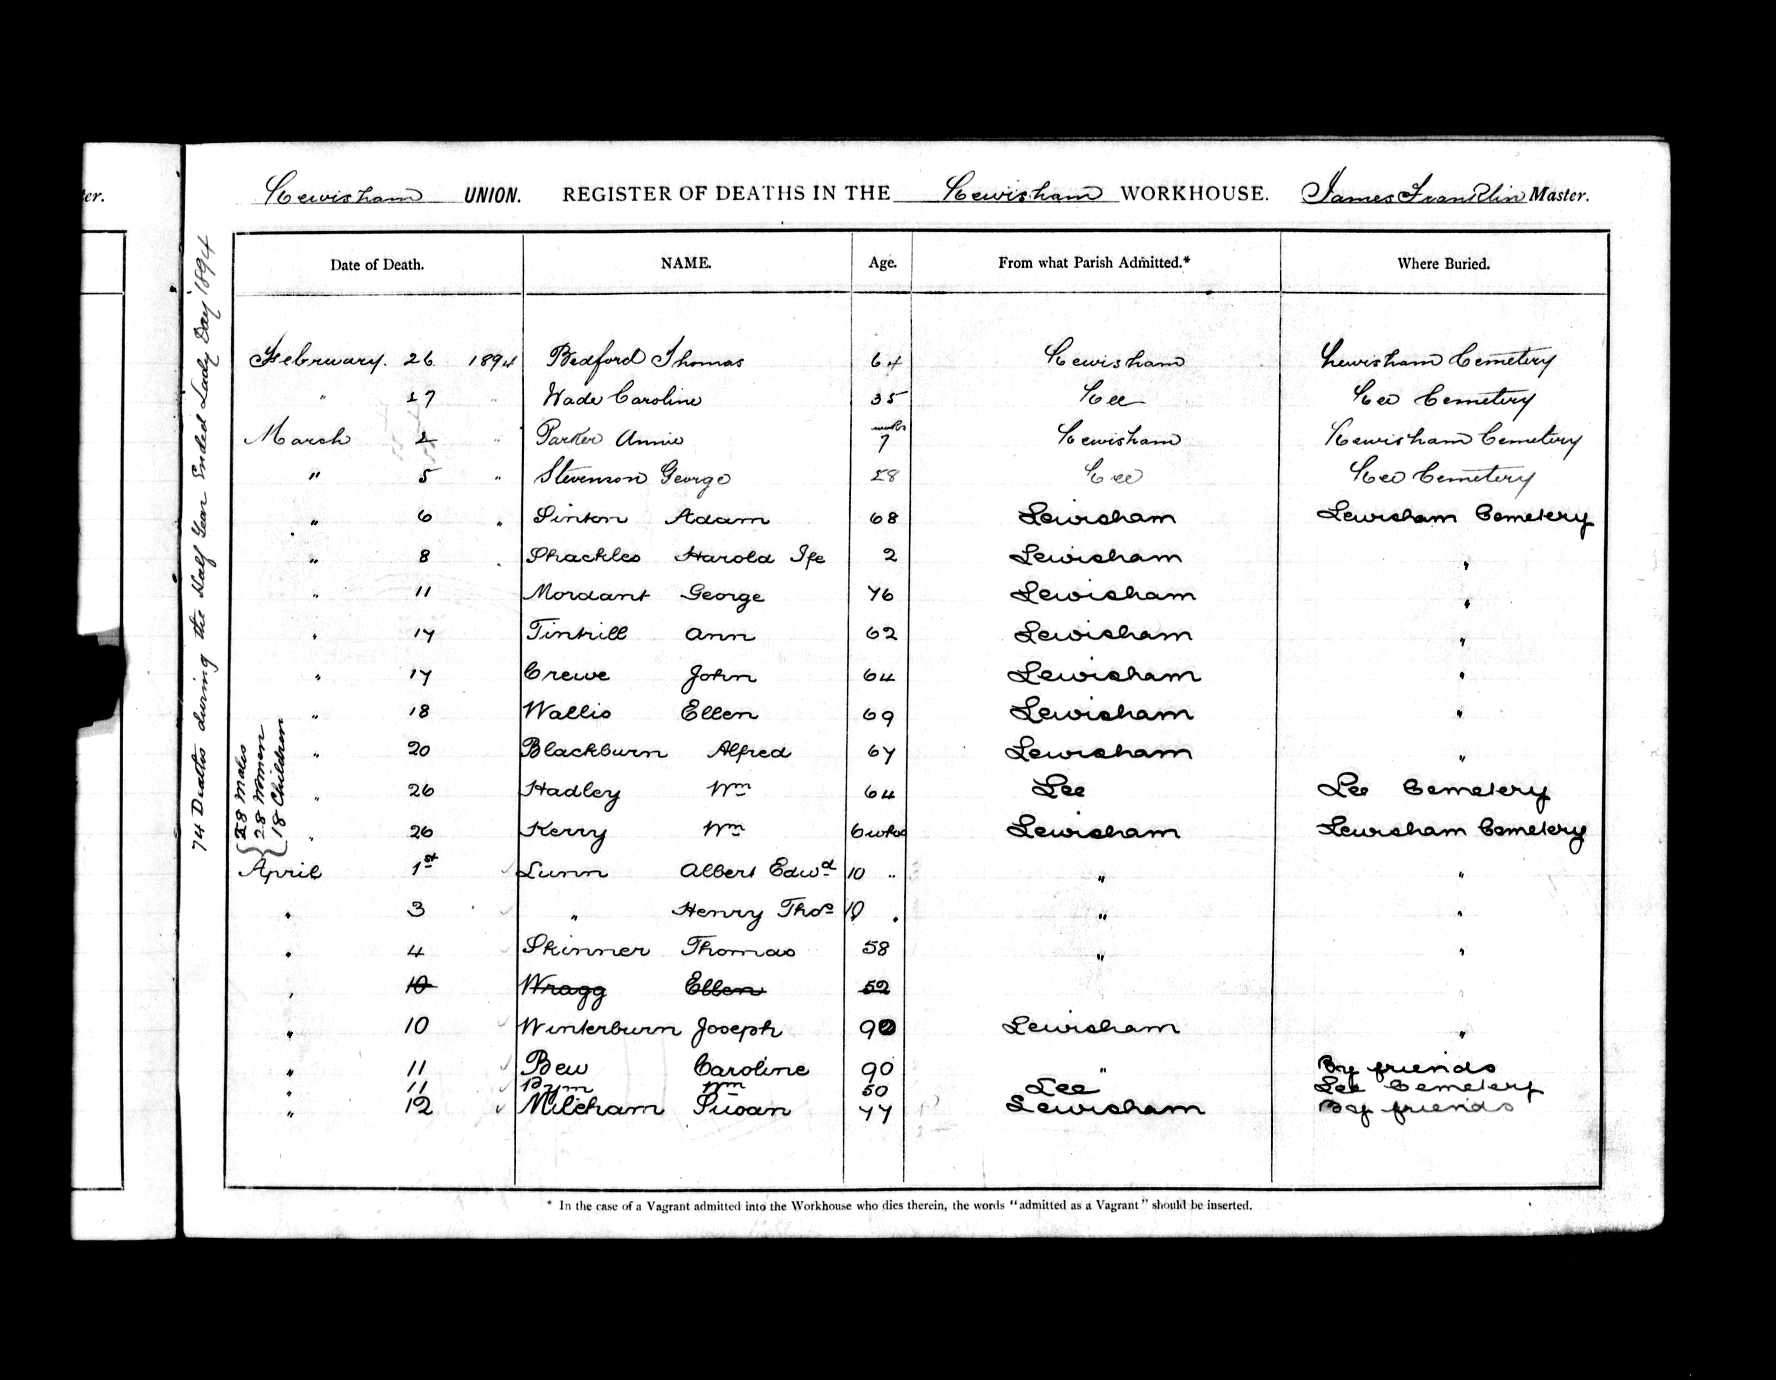 ter.
Lewisham UNION. REGISTER OF DEATHS IN THE Lewisham WORKHOUSE. James Franklin Master.
Date of Death. NAME. Age. From what Parish Admitted.* Where Buried.
February. 26 1894 Bedford Thomas 64 Lewisham Lewisham Cemetery
" 27 " Wade Caroline 35 Lee Lee Cemetery
March 2 " Parker Annie 7 mnths Lewisham Lewisham Cemetery
" 5 " Stevenson George 58 Lee Lee Cemetery
" 6 " Sinton Adam 68 Lewisham Lewisham Cemetery
" 8 " Shackles Harold Ife 2 Lewisham "
" 11 Mordant George 76 Lewisham "
" 17 Tintrill Ann 62 Lewisham "
" 17 Crewe John 64 Lewisham "
" 18 Wallis Ellen 69 Lewisham "
" 20 Blackburn Alfred 67 Lewisham "
" 26 Hadley Wm 64 Lee Lee Cemetery
" 26 Kerry Wm 6 wks Lewisham Lewisham Cemetery
April 1st Lunn Albert Edwd 10 " " "
" 3 " Henry Thos 10 " " "
" 4 Skinner Thomas 58 " "
" 10 Wragg Ellen 52 "
" 10 Winterburn Joseph 90 Lewisham "
" 11 Bew Caroline 90 " By friends
" 11 Pym Wm 50 Lee Lee Cemetery
" 12 Milcham Susan 77 Lewisham By friends
* In the case of a Vagrant admitted into the Workhouse who dies therein, the words "admitted as a Vagrant" should be inserted.
74 Deaths during the Half Year Ended Lady Day 1894
28 Males
28 Women
18 Children